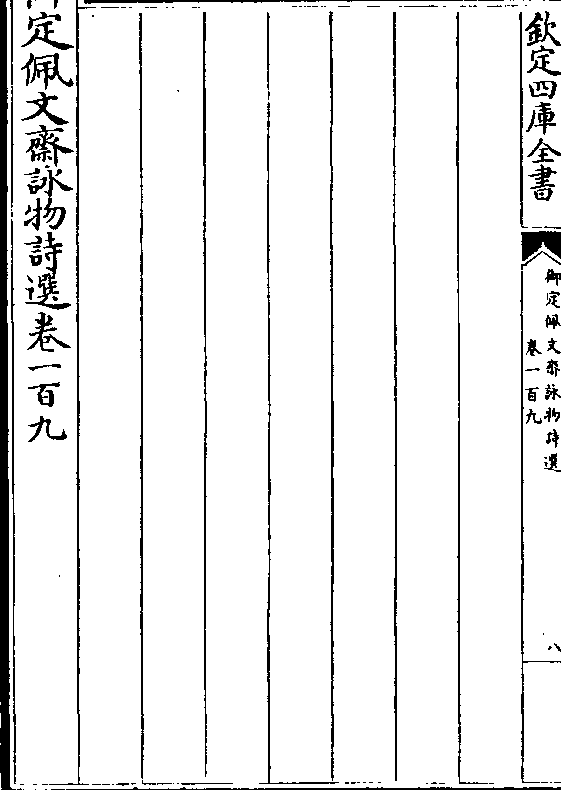 欽定四庫全書
御定佩文齋詠物詩選
卷一百九
八
御定佩文齋詠物詩選卷一百九